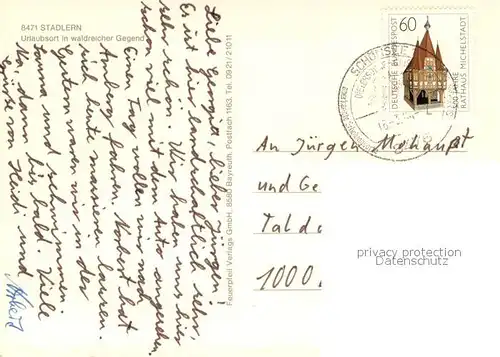 8471 STADLERN
Urlaubsort in waldreicher Gegend
Liebe Gregit, lieber Jürgen!
Es ist landschaftlich sehr,
sehr schön. Wir haben uns hier
schon viel mit dem Auto angesehen.
Einen Tag wollen wir nach
Amberg fahren. Norbert hat
uns heute massieren lassen.
Gestern waren wir in der
Sauna und schwimmen.
Na, dann bis bald. Viele
Grüße von Heidi und
Norbert
Feuerpfeil Verlags GmbH, 8580 Bayreuth, Postfach 1163, Tel. 09 21 / 2 10 11
60
DEUTSCHE BUNDESPOST
500 JAHRE
RATHAUS MICHELSTADT
SCHÖNSEE
An Jürgen Mohaupt
und Ge
Talda
1000
privacy protection
Datenschutz